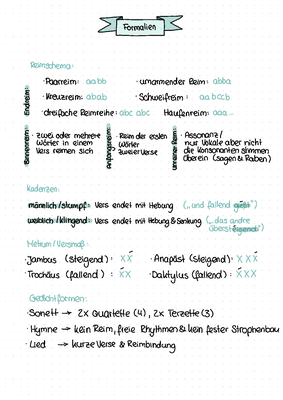 Formalien
Reimschema:
Endreim:
· Paarreim: aabb
· umarmender Reim: abba
· Kreuzreim: abab
· Schweifreim: aabccb
· dreifache Reimreihe: abc abc
Haufenreim: aaa...
Binnenreim:
· zwei oder mehrere
Wörter in einem
Vers reimen sich
Anfangsreim:
· Reim der ersten
Wörter
zweier Verse
unreiner Reim:
· Assonanz/
nur Vokale aber nicht
die Konsonanten stimmen
überein (sagen & Raben)
Kadenzen:
männlich/stumpf: Vers endet mit Hebung („und fallend gießt")
weiblich/klingend: Vers endet mit Hebung & Senkung („das andre
übersteigend")
Metrum/Versmaß:
· Jambus (steigend): X X́
· Anapäst (steigend): X X X́
· Trochäus (fallend): X́ X
· Daktylus (fallend): X́ X X
Gedichtformen:
· Sonett → 2x Quartette (4), 2x Terzette (3)
· Hymne → kein Reim, freie Rhythmen & kein fester Strophenbau
· Lied → kurze Verse & Reimbindung